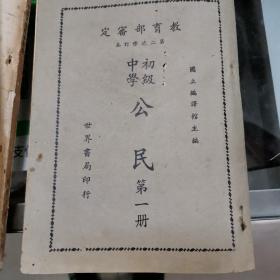 教育部審定
第二次修訂本
國立編譯館主編
初級中學
公民
第一册
世界書局印行